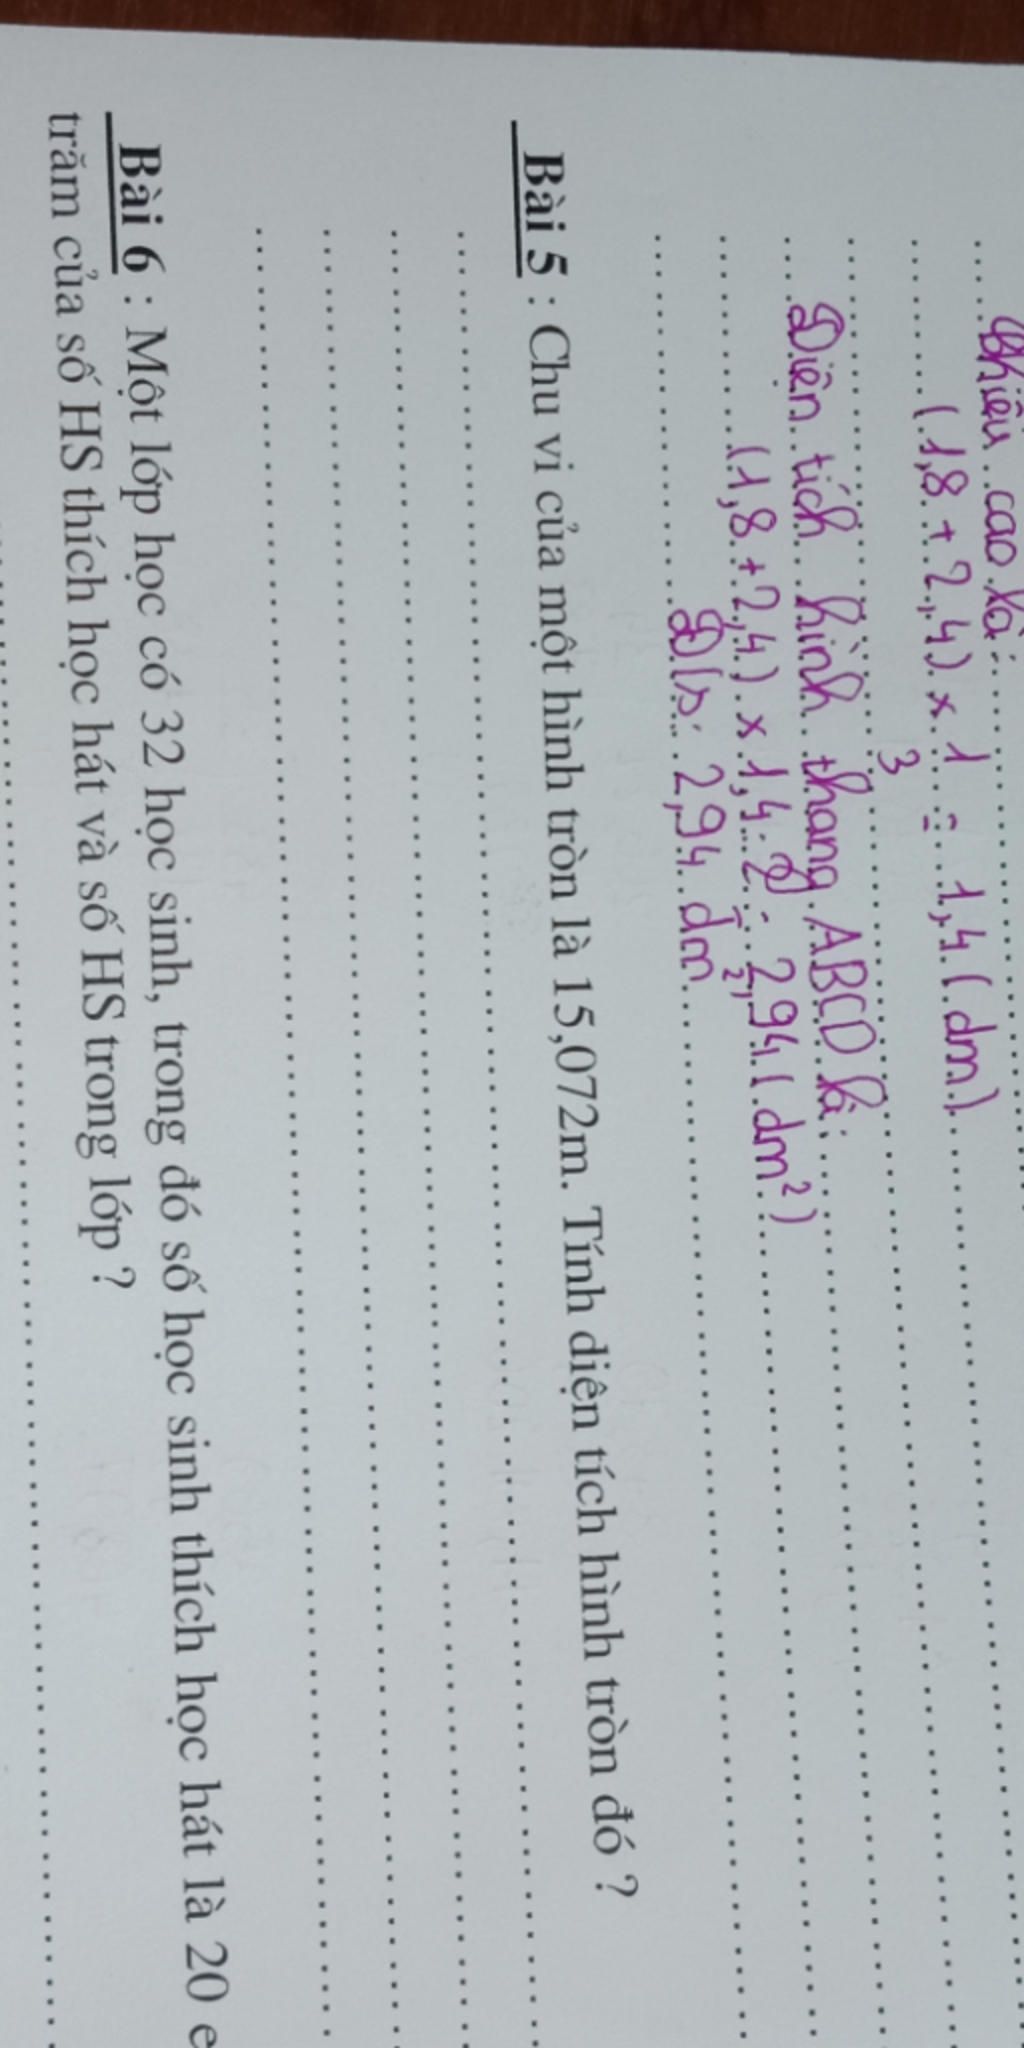 Chiều cao là:
(1,8 + 2,4) x 1/3 = 1,4 (dm)
Diện tích hình thang ABCD là:
(1,8 + 2,4) x 1,4 : 2 = 2,94 (dm²)
Đ/s: 2,94 dm²
Bài 5 : Chu vi của một hình tròn là 15,072m. Tính diện tích hình tròn đó ?
Bài 6 : Một lớp học có 32 học sinh, trong đó số học sinh thích học hát là 20 e
trăm của số HS thích học hát và số HS trong lớp ?